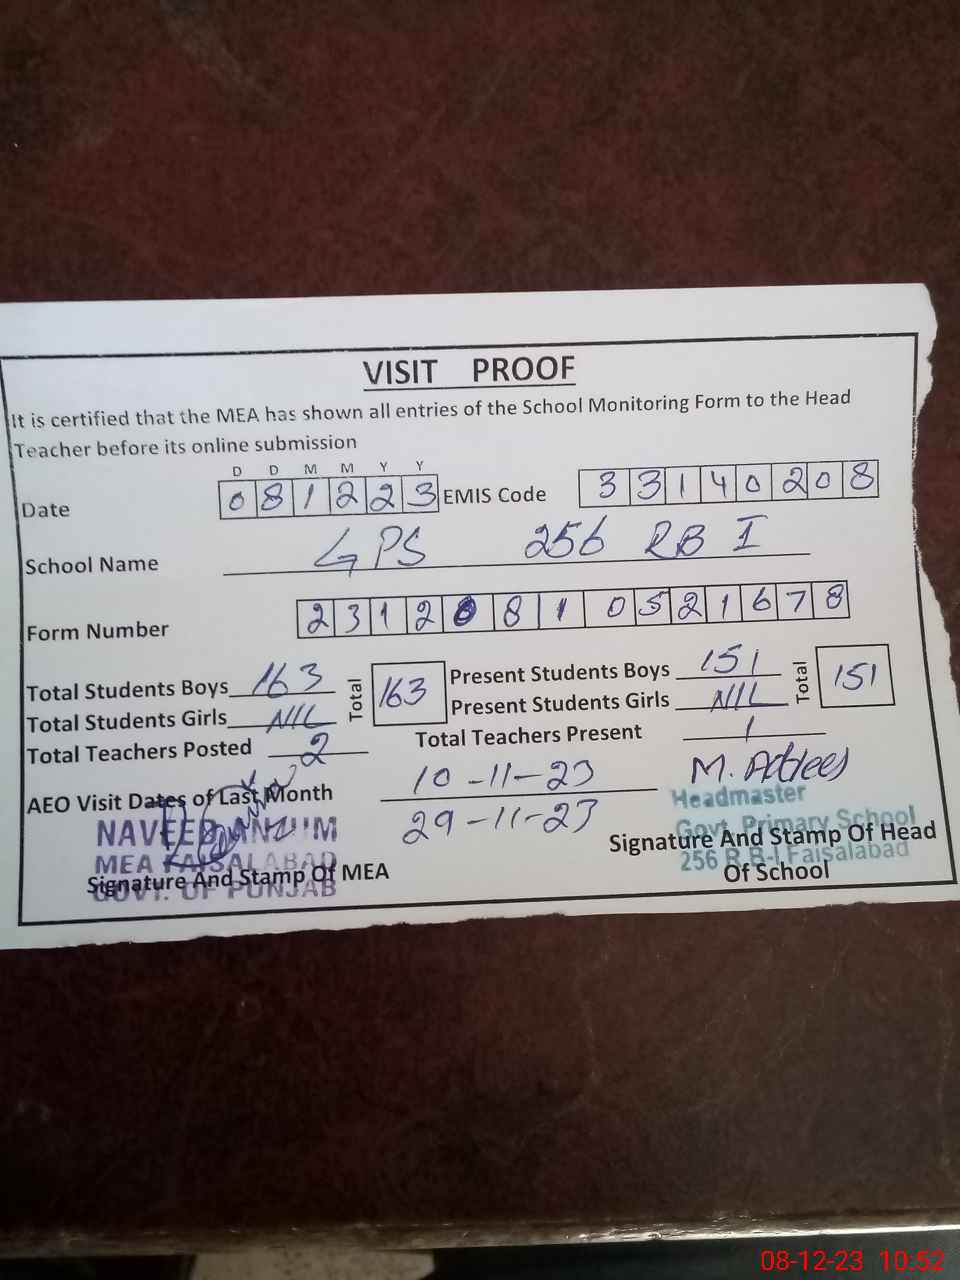 VISIT PROOF
It is certified that the MEA has shown all entries of the School Monitoring Form to the Head
Teacher before its online submission
D D M M Y Y
Date 081223 EMIS Code 33140208
School Name GPS 256 RB I
Form Number 23120810521678
Total Students Boys 163 Total 163 Present Students Boys 151 Total 151
Total Students Girls NIL Present Students Girls NIL
Total Teachers Posted 2 Total Teachers Present 1
AEO Visit Dates of Last Month 10-11-23
29-11-23
M.
Headmaster
Govt. Primary School
256 R.B-I Faisalabad
Signature And Stamp Of Head
Of School
NAVEED ANJUM
MEA FAISALABAD
GOVT. OF PUNJAB
Signature And Stamp Of MEA
08-12-23 10:52